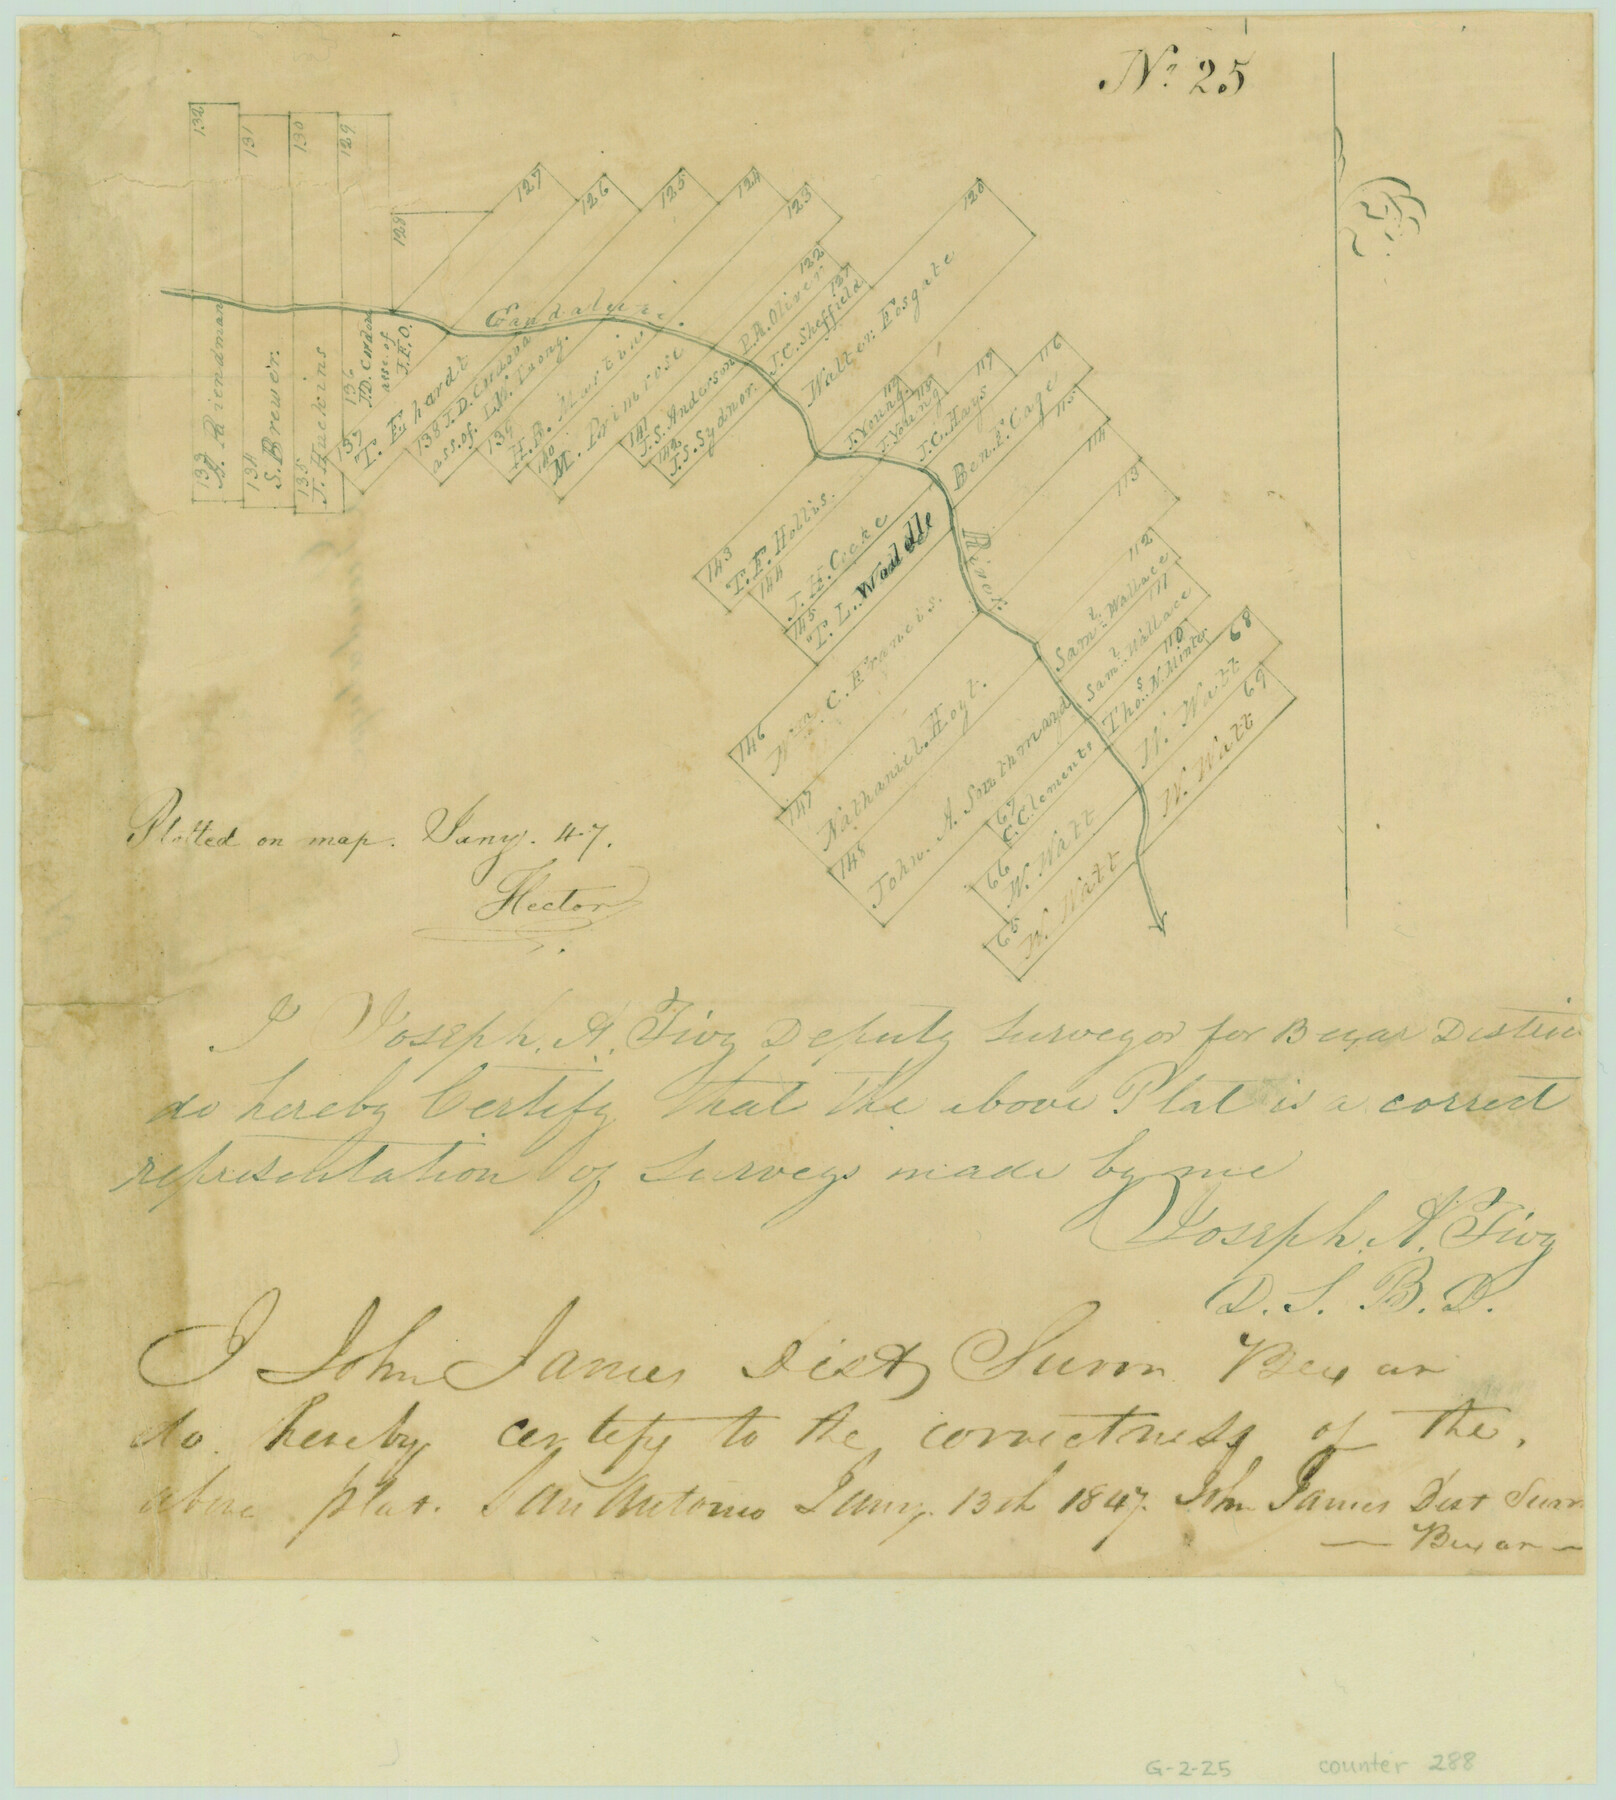 No. 25
132
131
130
129
128
127
126
125
124
123
122
P.R. Oliver
127
J.C. Sheffield
120
Walter Fosgate
119
J. Young
118
J. Young
117
J.C. Hays
116
Ben. F. Cage
115
114
113
112
Saml. Wallace
111
Saml. Wallace
110
Thos. N. Minter
68
W. Watt
69
W. Watt
Guadalupe
River
133
S. Brewer.
134
135
J. Huckins
136
J.D. Cordova
ass. of
J.E.O.
137
T. Ehardt
138 J.D. Cordova
ass. of.
139
H.B. Martin
140
M. Primrose
141
J.S. Anderson
142
J.S. Sydnor.
143
T.F. Hollis.
144
J.H. Cocke
145
T.L. Waddle
146
Wm. C. Francis.
147
Nathaniel. Hoyt.
148
John. A. Southmayd
67
C.C. Clements
66
W. Watt
65
W. Watt
Plotted on map. Jany. 47.
Hector
I Joseph. A. Tivy Deputy Surveyor for Bexar District
do hereby Certify that the above Plat is a correct
representation of Surveys made by me
Joseph. A. Tivy
D. S. B. D.
I John James Dist Survr Bexar
do hereby certify to the correctness of the
above plat. San Antonio Jany. 13th 1847. John James Dist Survr
— Bexar —
G-2-25
counter 288